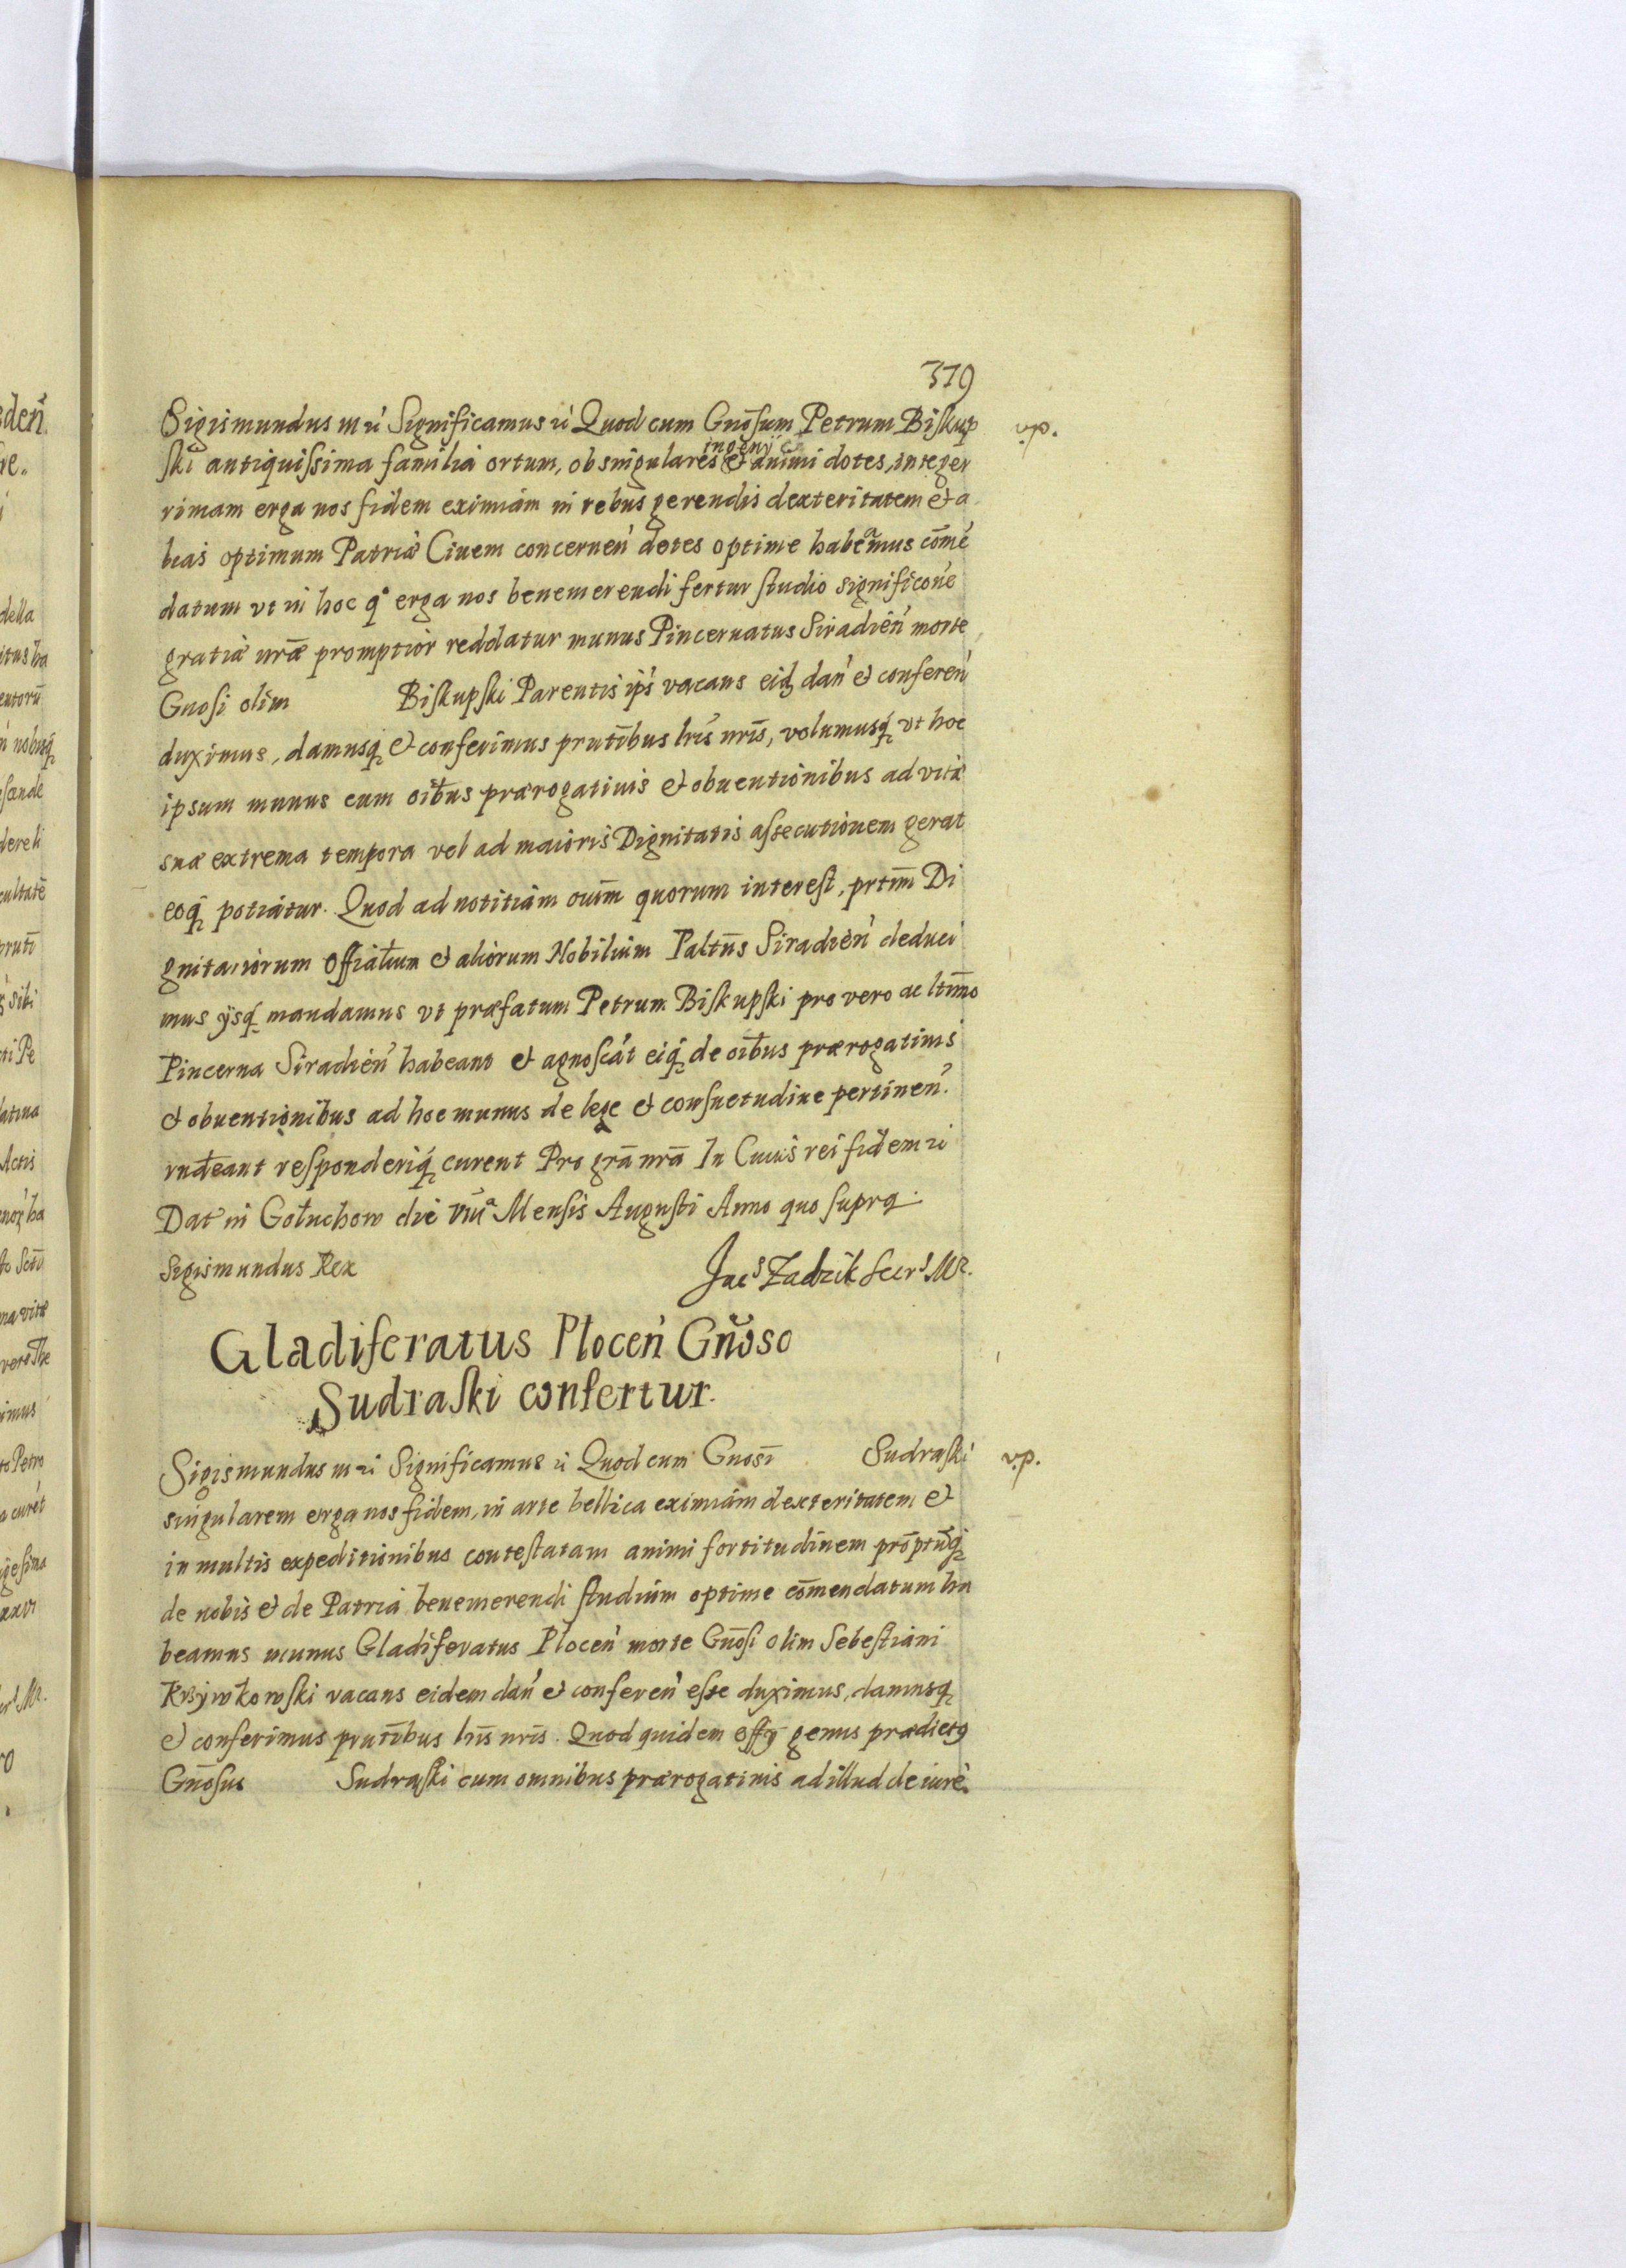 379
Sigismundus III &c Significamus &c Quod cum Gnōsum Petrum Biskup
v.p.
ski antiquissima familia ortum, ob singulares ingenij et animi dotes, integer
rimam erga nos fidem eximiam in rebus gerendis dexteritatem et a
lias optimum Patriæ Ciuem concernen̄ dotes optime habeamus com̄e
datum vt in hoc qº erga nos benemerendi fertur studio significone
gratiæ nr̄æ promptior reddatur munus Pincernatus Siradien̄ morte
Gnosi olim Biskupski Parentis ip̄s vacans eidq̨ dan̄ et conferen̄
duximus, damusq̨ et conferimus pr̄ntibus lr̄is nr̄is, volumusq̨ vt hoc
ipsum munus cum oib̄us prærogatiuis et obuentionibus ad vitæ
suæ extrema tempora vel ad maioris Dignitatis assecutionem gerat
eoq̨ potiatur. Quod ad notitiam oium̄ quorum interest, prtim̄ Di
gnitariorum Offialium et aliorum Nobilium Paltn̄s Siradien̄ deduci
mus ijsq̨ mandamus vt præfatum Petrum Biskupski pro vero ac ltim̄o
Pincerna Siradien̄ habeant et agnoscāt eiq̨ de oib̄us prærogatiuis
et obuentionibus ad hoc munus de lege et consuetudine pertinen̄
rndeant responderiq̨ curent Pro grā nrā In Cuius rei fidem &c
Dat in Gołuchow die VIIIª Mensis Augusti Anno quo supra.
Sigismundus Rex
Jacˢ Zadzik Secrˢ Mʀ.
Gladiferatus Plocen̄ Gn̄oso
Sudraski confertur.
Sigismundus III &c Significamus &c Quod cum Gnosī Sudraski
v.p.
singularem erga nos fidem, in arte bellica eximiam dexteritatem et
in multis expeditionibus contestatam animi fortitudinem prōptūq̨
de nobis et de Patria benemerendi studium optime com̄endatum ha
beamus munus Gladiferatus Plocen̄ morte Gn̄osi olim Sebestiani
Krzywkowski vacans eidem dan̄ et conferen̄ esse duximus, damusq̨
et conferimus pr̄ntibus lr̄is nr̄is. Quod quidem offȳ genus prædictꝰ
Gn̄osus Sudraski cum omnibus prærogatiuis ad illud de iure